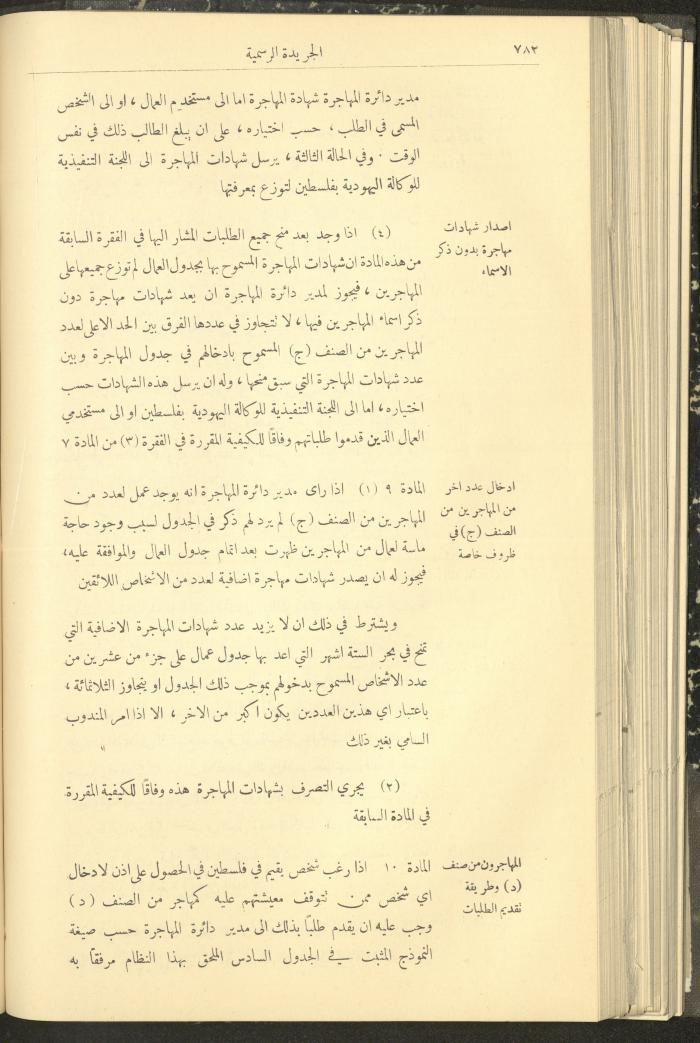 ٧٨٢
الجريدة الرسمية
مدير دائرة المهاجرة شهادة المهاجرة اما الى مستخدم العمال ، او الى الشخص
المسمى في الطلب ، حسب اختياره ، على ان يبلغ الطالب ذلك في نفس
الوقت . وفي الحالة الثالثة ، يرسل شهادات المهاجرة الى اللجنة التنفيذية
للوكالة اليهودية بفلسطين لتوزع بمعرفتها
اصدار شهادات
مهاجرة بدون ذكر
الاسماء
(٤) اذا وجد بعد منح جميع الطلبات المشار اليها في الفقرة السابقة
من هذه المادة ان شهادات المهاجرة المسموح بها بجدول العمال لم توزع جميعها على
المهاجرين ، فيجوز لمدير دائرة المهاجرة ان يعد شهادات مهاجرة دون
ذكر اسماء المهاجرين فيها ، لا تتجاوز في عددها الفرق بين الحد الاعلى لعدد
المهاجرين من الصنف (ج) المسموح بادخالهم في جدول المهاجرة وبين
عدد شهادات المهاجرة التي سبق منحها ، وله ان يرسل هذه الشهادات حسب
اختياره ، اما الى اللجنة التنفيذية للوكالة اليهودية بفلسطين او الى مستخدمي
العمال الذين قدموا طلباتهم وفاقًا للكيفية المقررة في الفقرة (٣) من المادة ٧
ادخال عدد اخر
من المهاجرين من
الصنف (ج) في
ظروف خاصة
المادة ٩ (١) اذا راى مدير دائرة المهاجرة انه يوجد عمل لعدد من
المهاجرين من الصنف (ج) لم يرد لهم ذكر في الجدول لسبب وجود حاجة
ماسة لعمال من المهاجرين ظهرت بعد اتمام جدول العمال والموافقة عليه،
فيجوز له ان يصدر شهادات مهاجرة اضافية لعدد من الاشخاص اللائقين
ويشترط في ذلك ان لا يزيد عدد شهادات المهاجرة الاضافية التي
تمنح في بحر الستة اشهر التي اعد بها جدول عمال على جزء من عشرين من
عدد الاشخاص المسموح بدخولهم بموجب ذلك الجدول او يتجاوز الثلاثمائة ،
باعتبار اي هذين العددين يكون اكبر من الاخر ، الا اذا امر المندوب
السامي بغير ذلك
(٢) يجري التصرف بشهادات المهاجرة هذه وفاقًا للكيفية المقررة
في المادة السابقة
المهاجرون من صنف
(د) وطريقة
تقديم الطلبات
المادة ١٠ اذا رغب شخص يقيم في فلسطين في الحصول على اذن لادخال
اي شخص ممن تتوقف معيشتهم عليه كمهاجر من الصنف (د)
وجب عليه ان يقدم طلبًا بذلك الى مدير دائرة المهاجرة حسب صيغة
النموذج المثبت في الجدول السادس الملحق بهذا النظام مرفقًا به